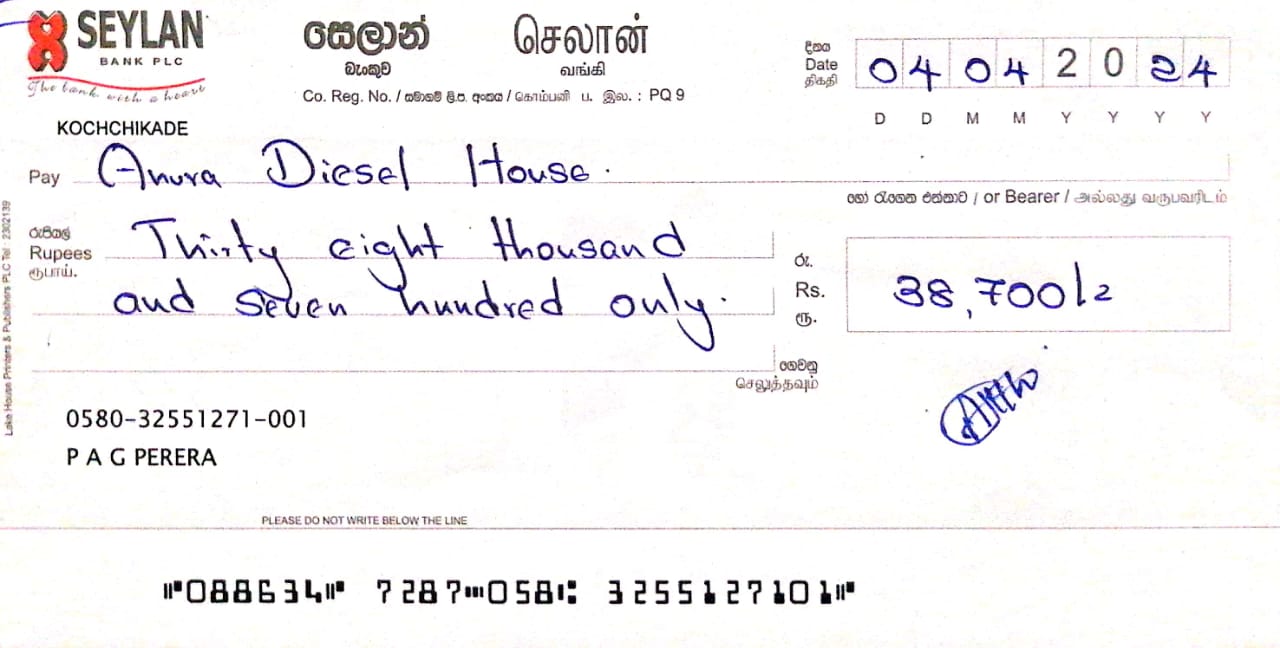 SEYLAN
BANK PLC
The bank with a heart
සෙලාන්
බැංකුව
செலான்
வங்கி
Co. Reg. No. / සමාගම් ලි.ප. අංකය / கொம்பனி ப. இல. : PQ 9
දිනය
Date
திகதி
04 04 2024
D D M M Y Y Y Y
KOCHCHIKADE
Pay Anura Diesel House.
හෝ රැගෙන එන්නාට / or Bearer / அல்லது வருபவரிடம்
රුපියල්
Rupees
ரூபாய்.
Thirty eight thousand
and seven hundred only.
රු.
Rs.
ரூ.
38,700/=
ගෙවනු
செலுத்தவும்
0580-32551271-001
P A G PERERA
PLEASE DO NOT WRITE BELOW THE LINE
⑈088634⑈ 7287⑉058⑆ 3255127101⑈
Lake House Printers & Publishers PLC Tel : 2302139